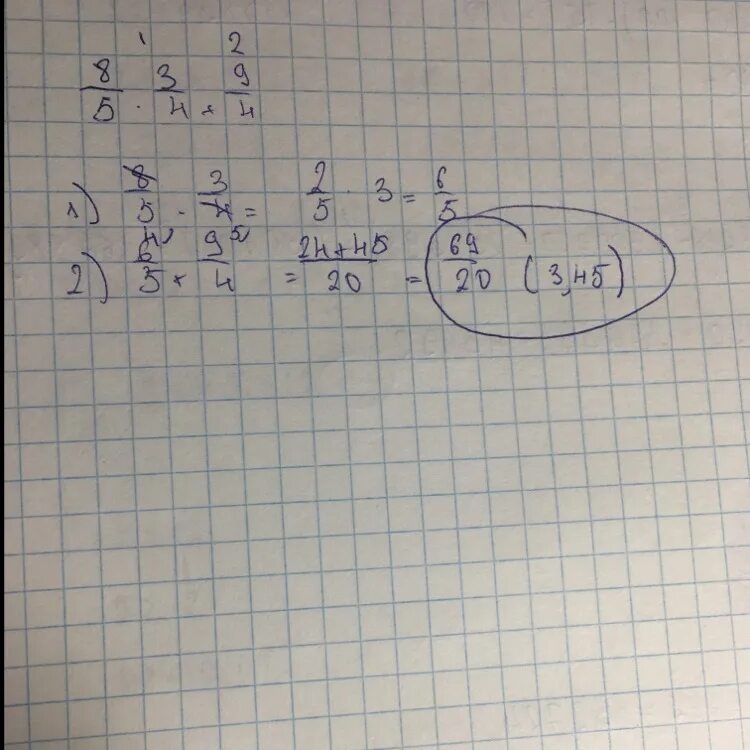 1 2
8/5 · 3/4 + 9/4
1) 8/5 · 3/4 = 2/5 · 3 = 6/5
2) 6/5 4) + 9/4 5) = 24+45/20 = 69/20 (3,45)